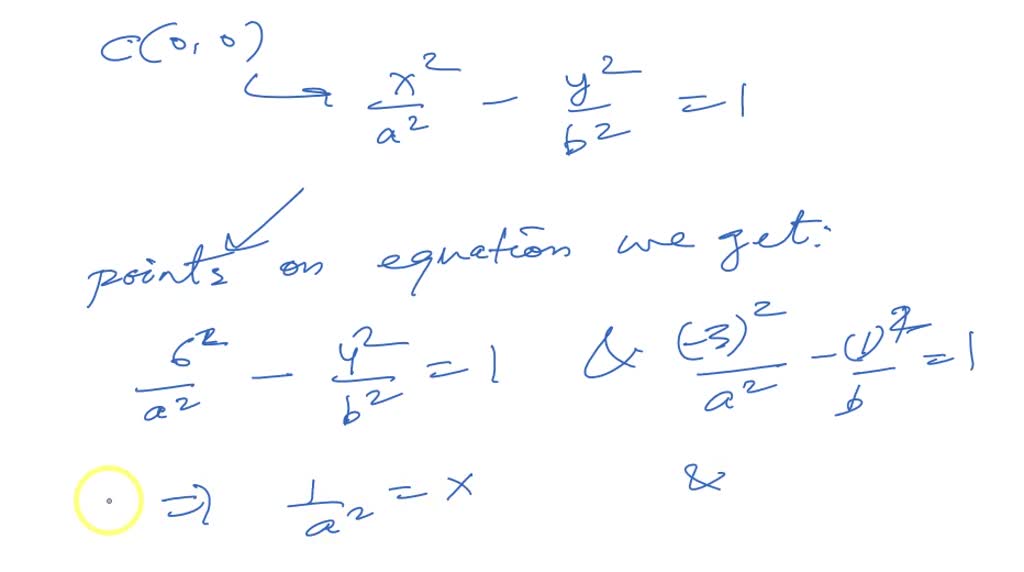 C(0, 0)
x²/a² - y²/b² = 1
points on equation we get:
6²/a² - 4²/b² = 1 & (-3)²/a² - (1)²/b = 1
⇒ 1/a² = x &